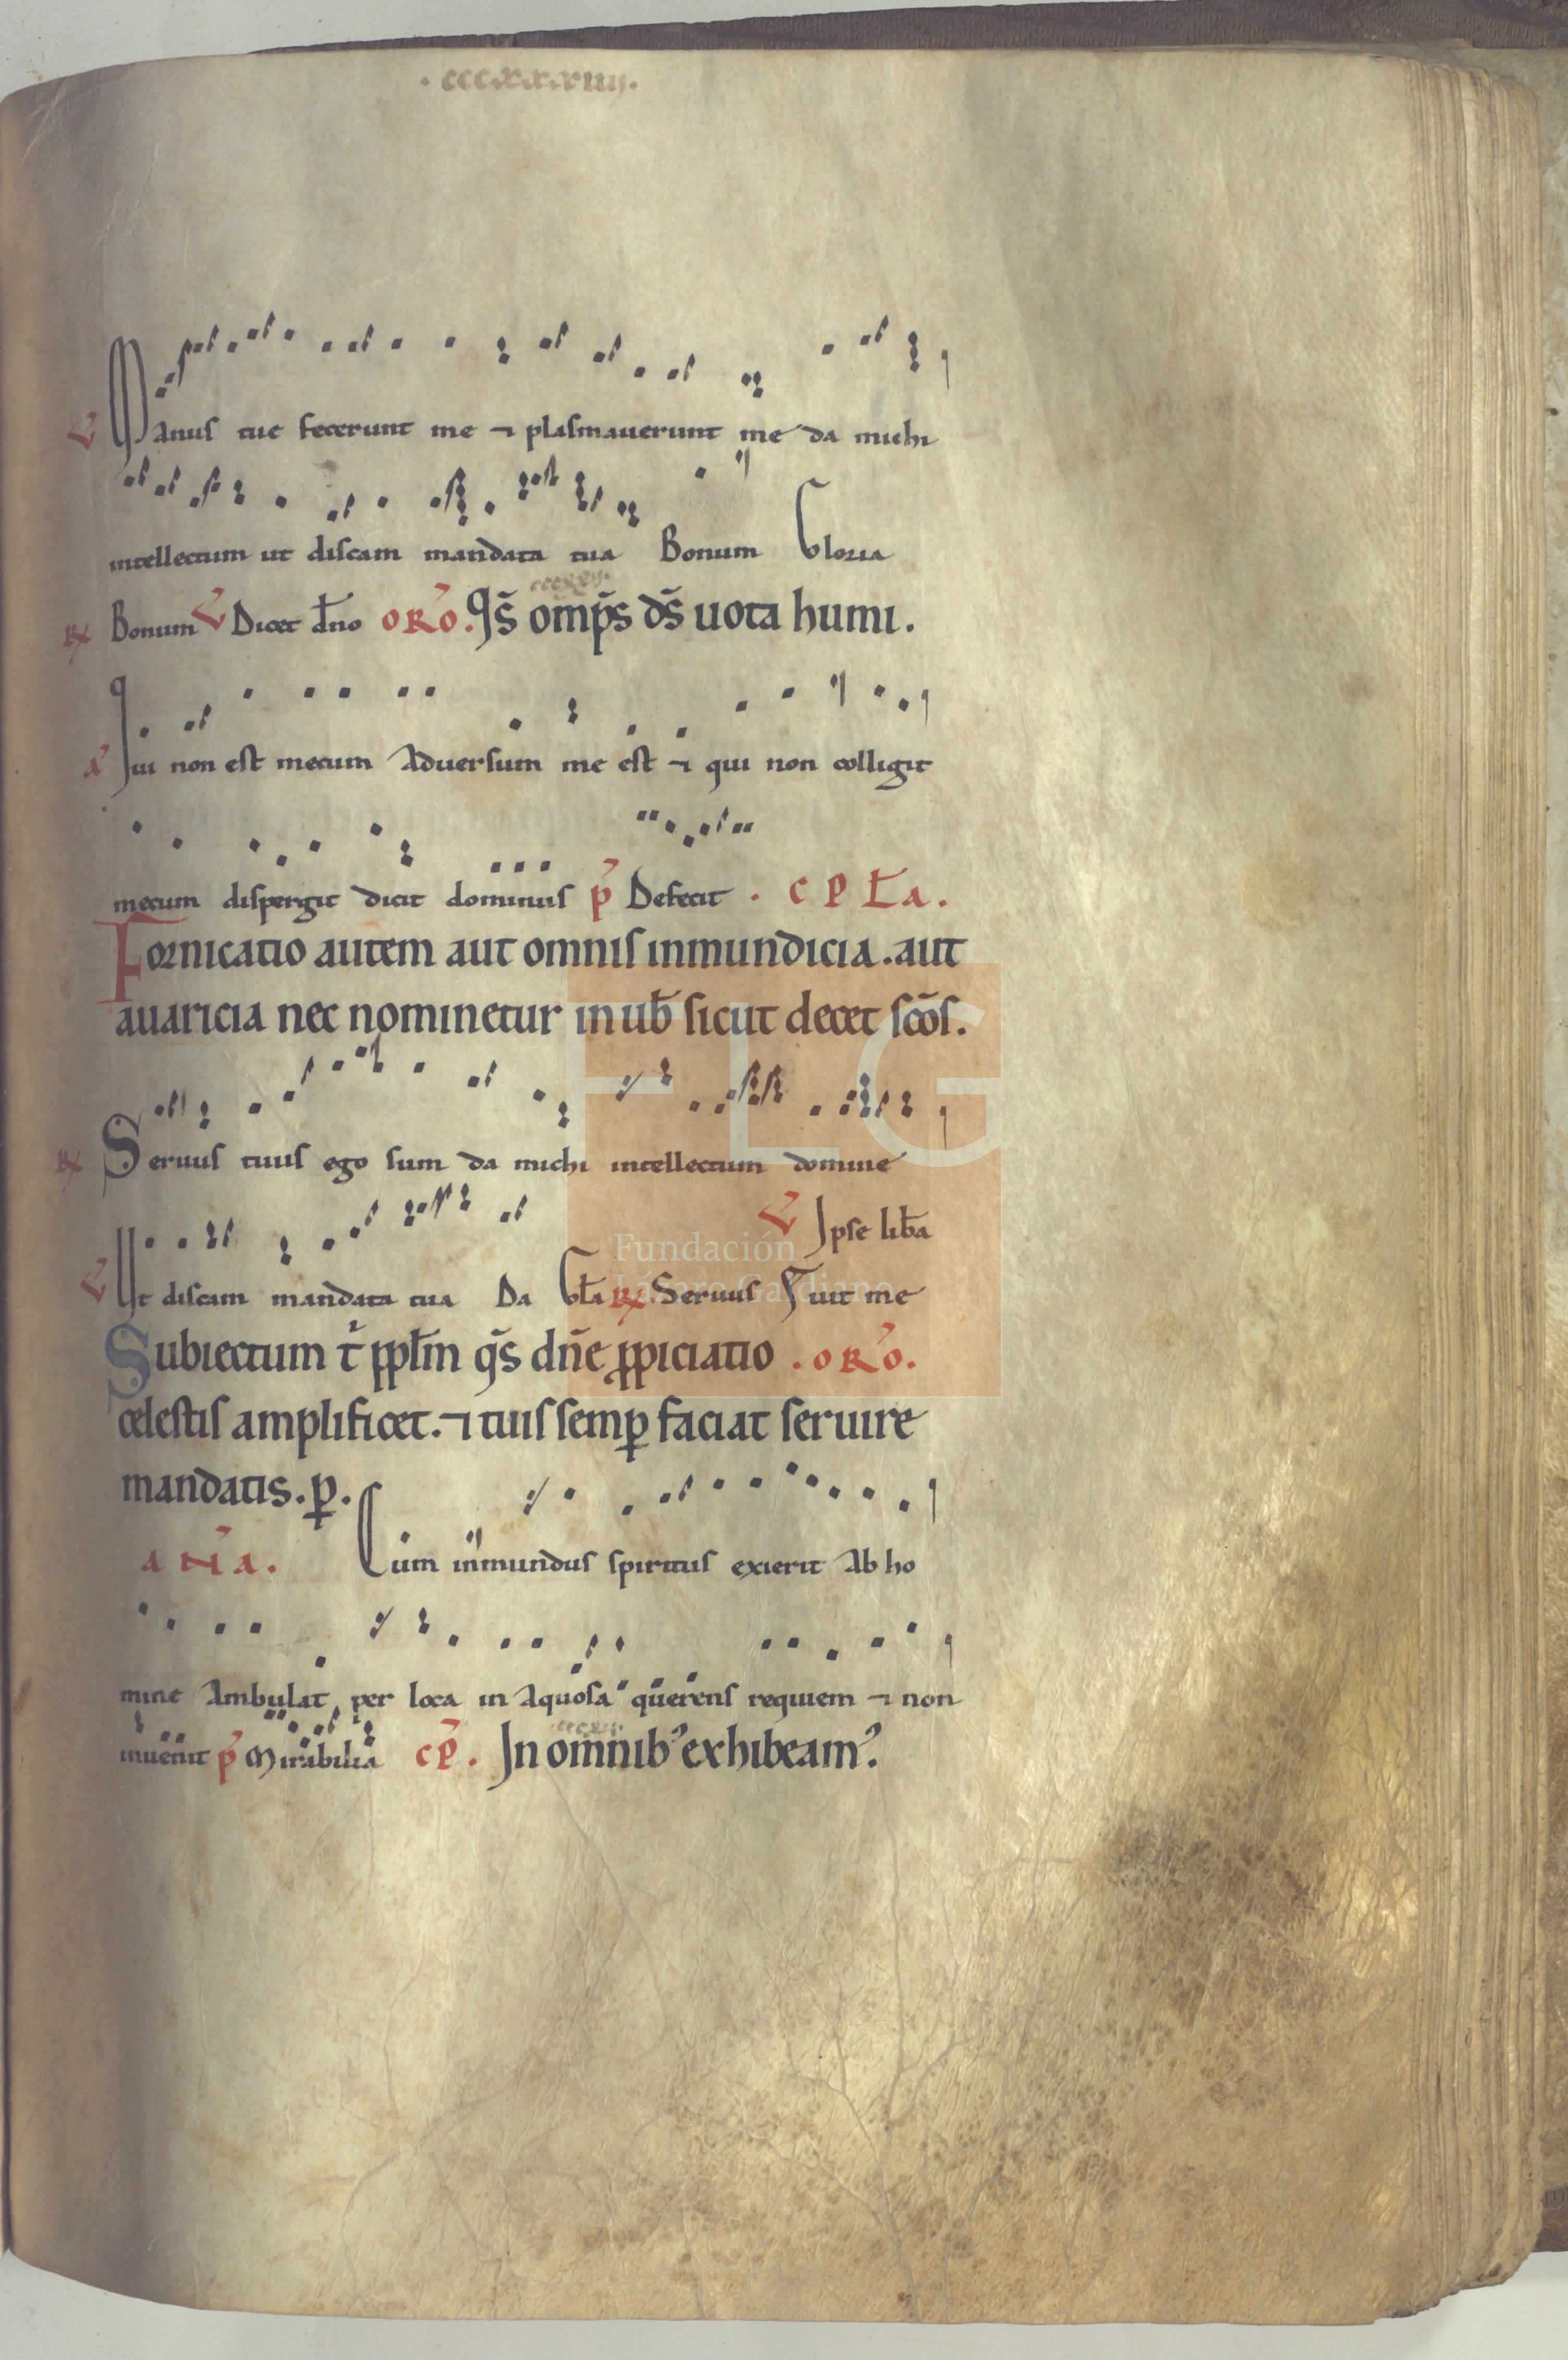 . cccxxxviiij.
℣ Manus tue fecerunt me ⁊ plasmauerunt me da michi
intellectum ut discam mandata tua Bonum Gloria
℟ Bonum ℣ Dicet dn̄o oRo. Qs̄ omp̄s ds̄ uota humi.
a Qui non est mecum Aduersum me est ⁊ qui non colligit
mecum dispergit dicit dominus p̄ Defecit . C P Ł a .
Fornicatio autem aut omnis inmundicia . aut
auaricia nec nominetur in ub̄ sicut decet sc̄os .
℟ Seruus tuus ego sum da michi intellectum domine
℣ Ipse lib̄a
℣ Ut discam mandata tua Da Gła ℟ Seruus F uit me
Subiectum t̄ ppłm qs̄ dn̄e ꝓpiciatio . oRo.
celestis amplificet . ⁊ tuis semꝑ faciat seruire
mandatis . ꝑ .
a N a . Cum inmundus spiritus exierit Ab ho
mine Ambulat per loca in Aquosa querens requiem ⁊ non
inuenit p̄ Mirabilia cP̄ . In omnibꝰ exhibeamꝰ
Fundación
Lázaro Galdiano
FLG